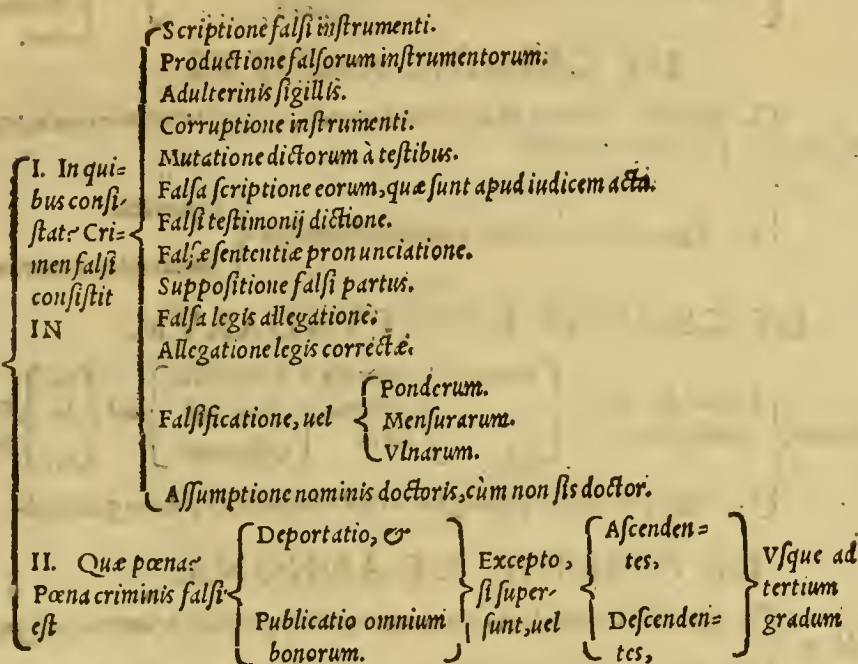 I. In qui=
bus consi-
stat? Cri=
men falsi
consistit
IN
Scriptione falsi instrumenti.
Productione falsorum instrumentorum.
Adulterinis sigillis.
Corruptione instrumenti.
Mutatione dictorum à testibus.
Falsa scriptione eorum, quæ sunt apud iudicem acta.
Falsi testimonij dictione.
Falsæ sententiæ pronunciatione.
Suppositione falsi partus.
Falsa legis allegatione.
Allegatione legis correctæ.
Falsificatione, uel
Ponderum.
Mensurarum.
Vlnarum.
Assumptione nominis doctoris, cùm non sis doctor.
II. Quæ pœna?
Pœna criminis falsi
est
Deportatio, &
Publicatio omnium
bonorum.
Excepto,
si super-
sunt, uel
Ascenden=
tes,
Descenden=
tes,
Vsque ad
tertium
gradum